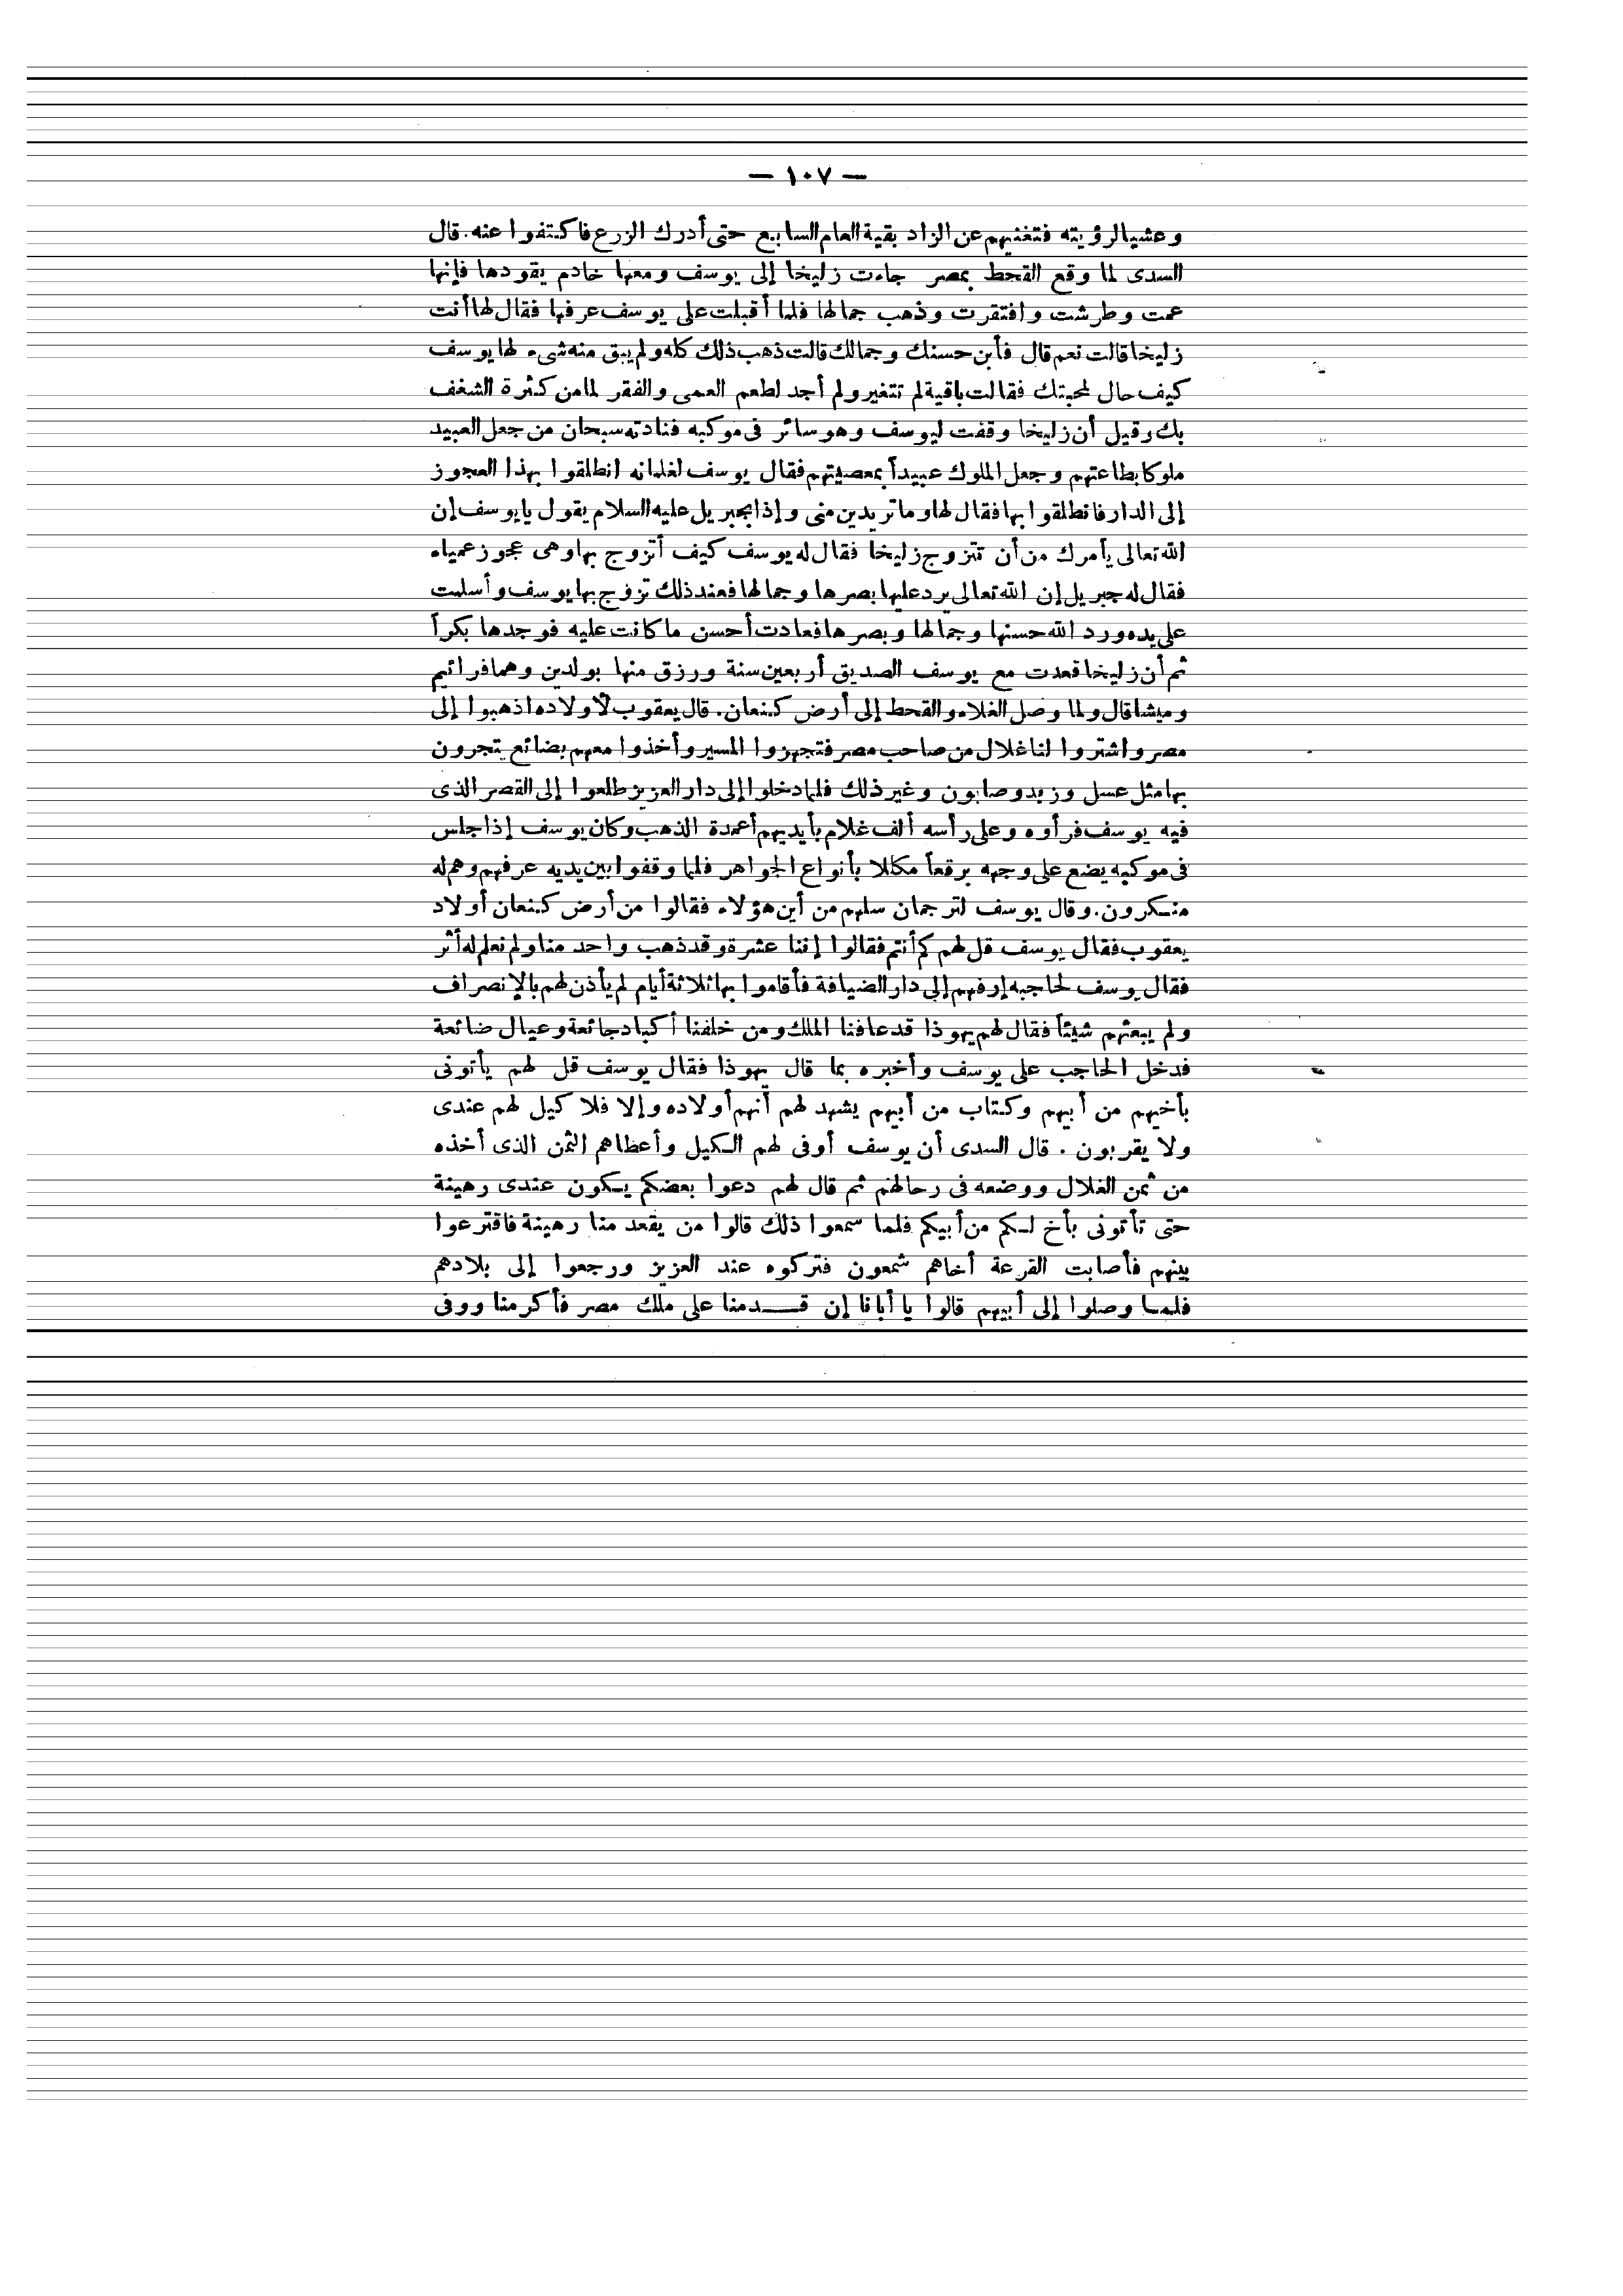 — ١٠٧ —
وعشيالرؤيته فتغنيهم عن الزاد بقية العام السابع حتى أدرك الزرع فاكتفوا عنه. قال
السدى لما وقع القحط بمصر جاءت زليخا إلى يوسف ومعها خادم يقودها فإنها
عمت وطرشت وافتقرت وذهب جمالها فلما أقبلت على يوسف عرفها فقال لها أنت
زليخا قالت نعم قال فأين حسنك وجمالك قالت ذهب ذلك كله ولم يبق منه شىء لها يوسف
كيف حال لمحبتك فقالت باقية لم تتغير ولم أجد لطعم العمى والفقر لما من كثرة الشغف
بك وقيل أن زليخا وقفت ليوسف وهو سائر فى موكبه فنادته سبحان من جعل العبيد
ملوكا بطاعتهم وجعل الملوك عبيداً بمعصيتهم فقال يوسف لغلمانه انطلقوا بهذا العجوز
إلى الدار فانطلقوا بها فقال لها وما تريدين منى وإذا بجبريل عليه السلام يقول يايوسف إن
الله تعالى يأمرك من أن تتزوج زليخا فقال له يوسف كيف أتزوج بها وهى عجوز عمياء
فقال له جبريل إن الله تعالى يرد عليها بصرها وجمالها فعند ذلك تزوج بها يوسف وأسلمت
على يده ورد الله حسنها وجمالها وبصرها فعادت أحسن ما كانت عليه فوجدها بكراً
ثم أن زليخا قعدت مع يوسف الصديق أربعين سنة ورزق منها بولدين وهما فرائيم
وميشا قال ولما وصل الغلاء والقحط إلى أرض كنعان. قال يعقوب لأولاده اذهبوا إلى
مصر واشتروا لنا غلال من صاحب مصر فتجهزوا المسير وأخذوا معهم بضائع يتجرون
بها مثل عسل وزبد وصابون وغير ذلك فلما دخلوا إلى دار العزيز طلعوا إلى القصر الذى
فيه يوسف فرأوه وعلى رأسه ألف غلام بأيديهم أعمدة الذهب وكان يوسف إذا جلس
فى موكبه يضع على وجهه برقعاً مكللا بأنواع الجواهر فلما وقفوا بين يديه عرفهم وهم له
منكرون. وقال يوسف لترجمان سلهم من أين هؤلاء فقالوا من أرض كنعان أولاد
يعقوب فقال يوسف قل لهم كم أنتم فقالوا إننا عشرة وقد ذهب واحد منا ولم نعلم له أثر
فقال يوسف لحاجبه إرفهم إلى دار الضيافة فأقاموا بها ثلاثة أيام لم يأذن لهم بالإنصراف
ولم يبعثهم شيئاً فقال لهم يهوذا قد عافنا الملك ومن خلفنا أكباد جائعة وعيال ضائعة
فدخل الحاجب على يوسف وأخبره بما قال يهوذا فقال يوسف قل لهم يأتونى
بأخيهم من أبيهم وكتاب من أبيهم يشهد لهم أنهم أولاده وإلا فلا كيل لهم عندى
ولا يقربون . قال السدى أن يوسف أوفى لهم الكيل وأعطاهم الثمن الذى أخذه
من ثمن الغلال ووضعه فى رحالهم ثم قال لهم دعوا بعضكم يكون عندى رهينة
حتى تأتونى بأخ لكم من أبيكم فلما سمعوا ذلك قالوا من يقعد منا رهينة فاقترعوا
بينهم فأصابت القرعة أخاهم شمعون فتركوه عند العزيز ورجعوا إلى بلادهم
فلما وصلوا إلى أبيهم قالوا يا أبانا إن قدمنا على ملك مصر فأكرمنا ووفى